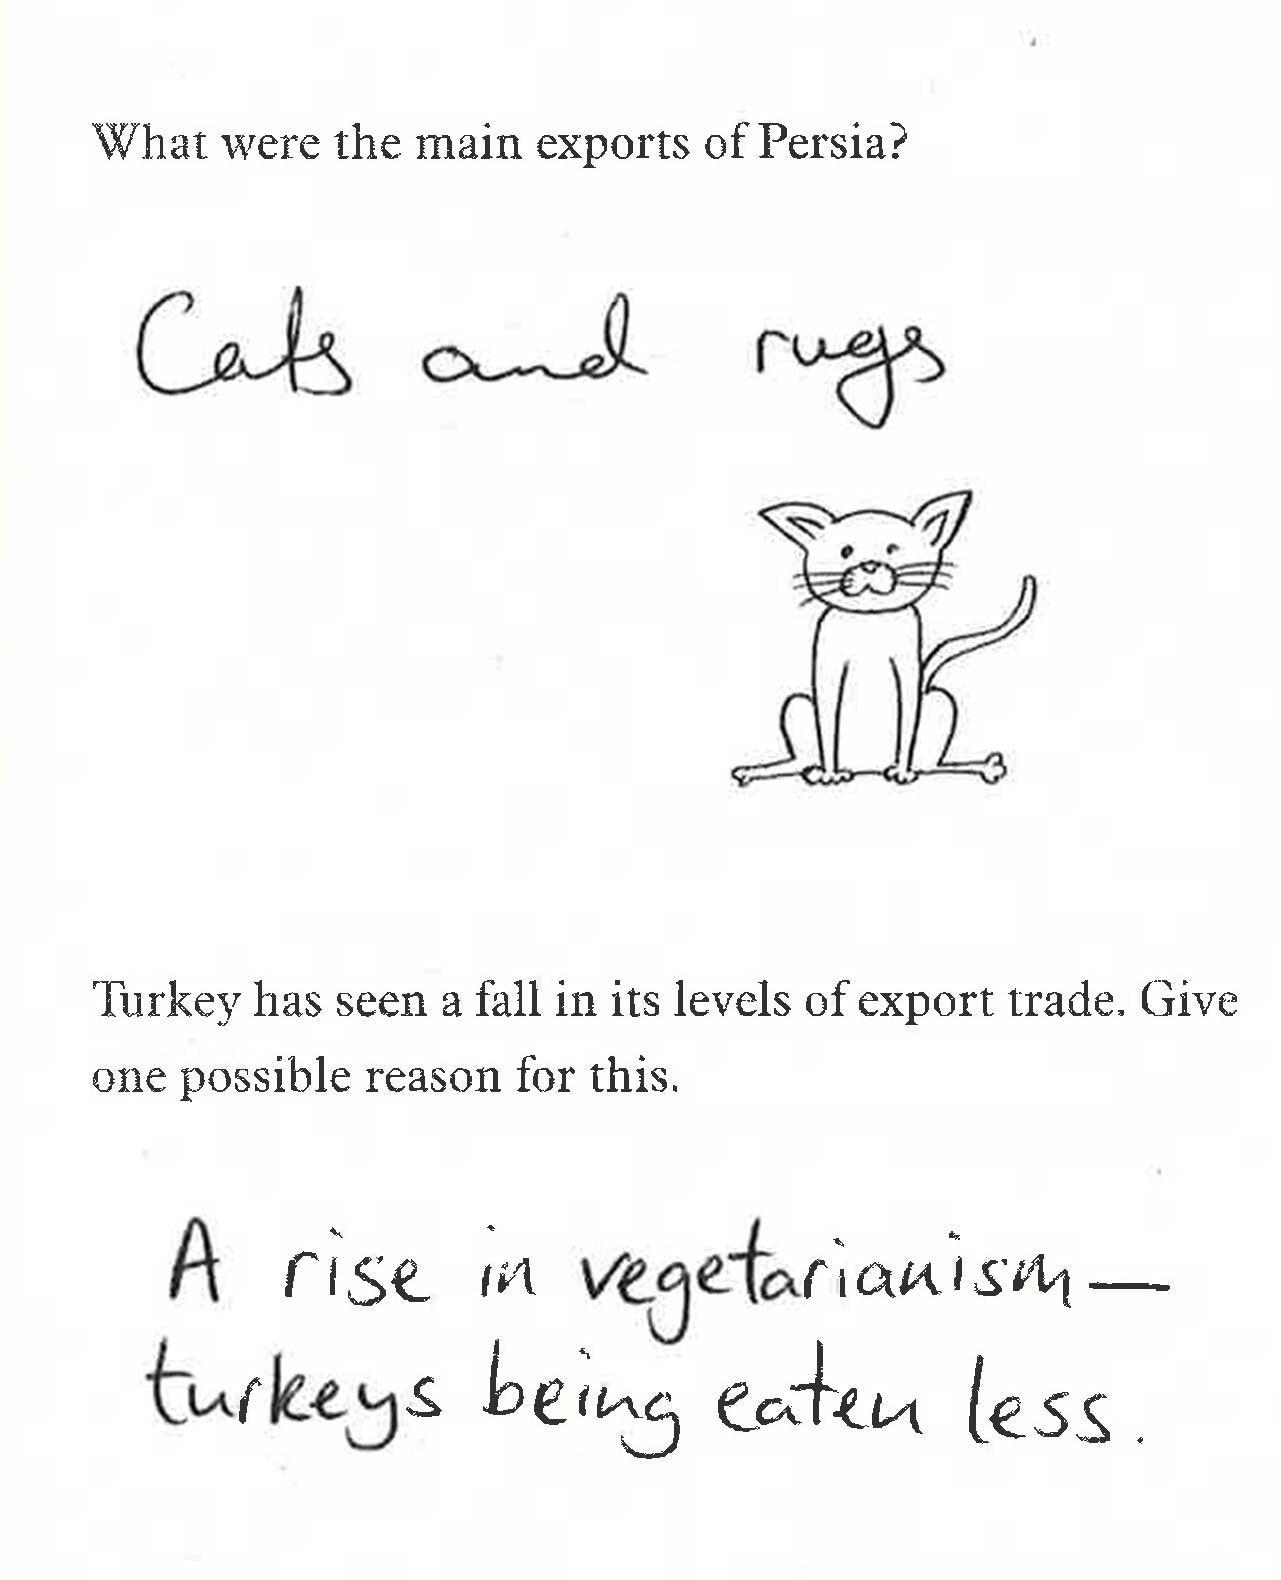 What were the main exports of Persia?
Cats and rugs
Turkey has seen a fall in its levels of export trade. Give
one possible reason for this.
A rise in vegetarianism—
turkeys being eaten less.